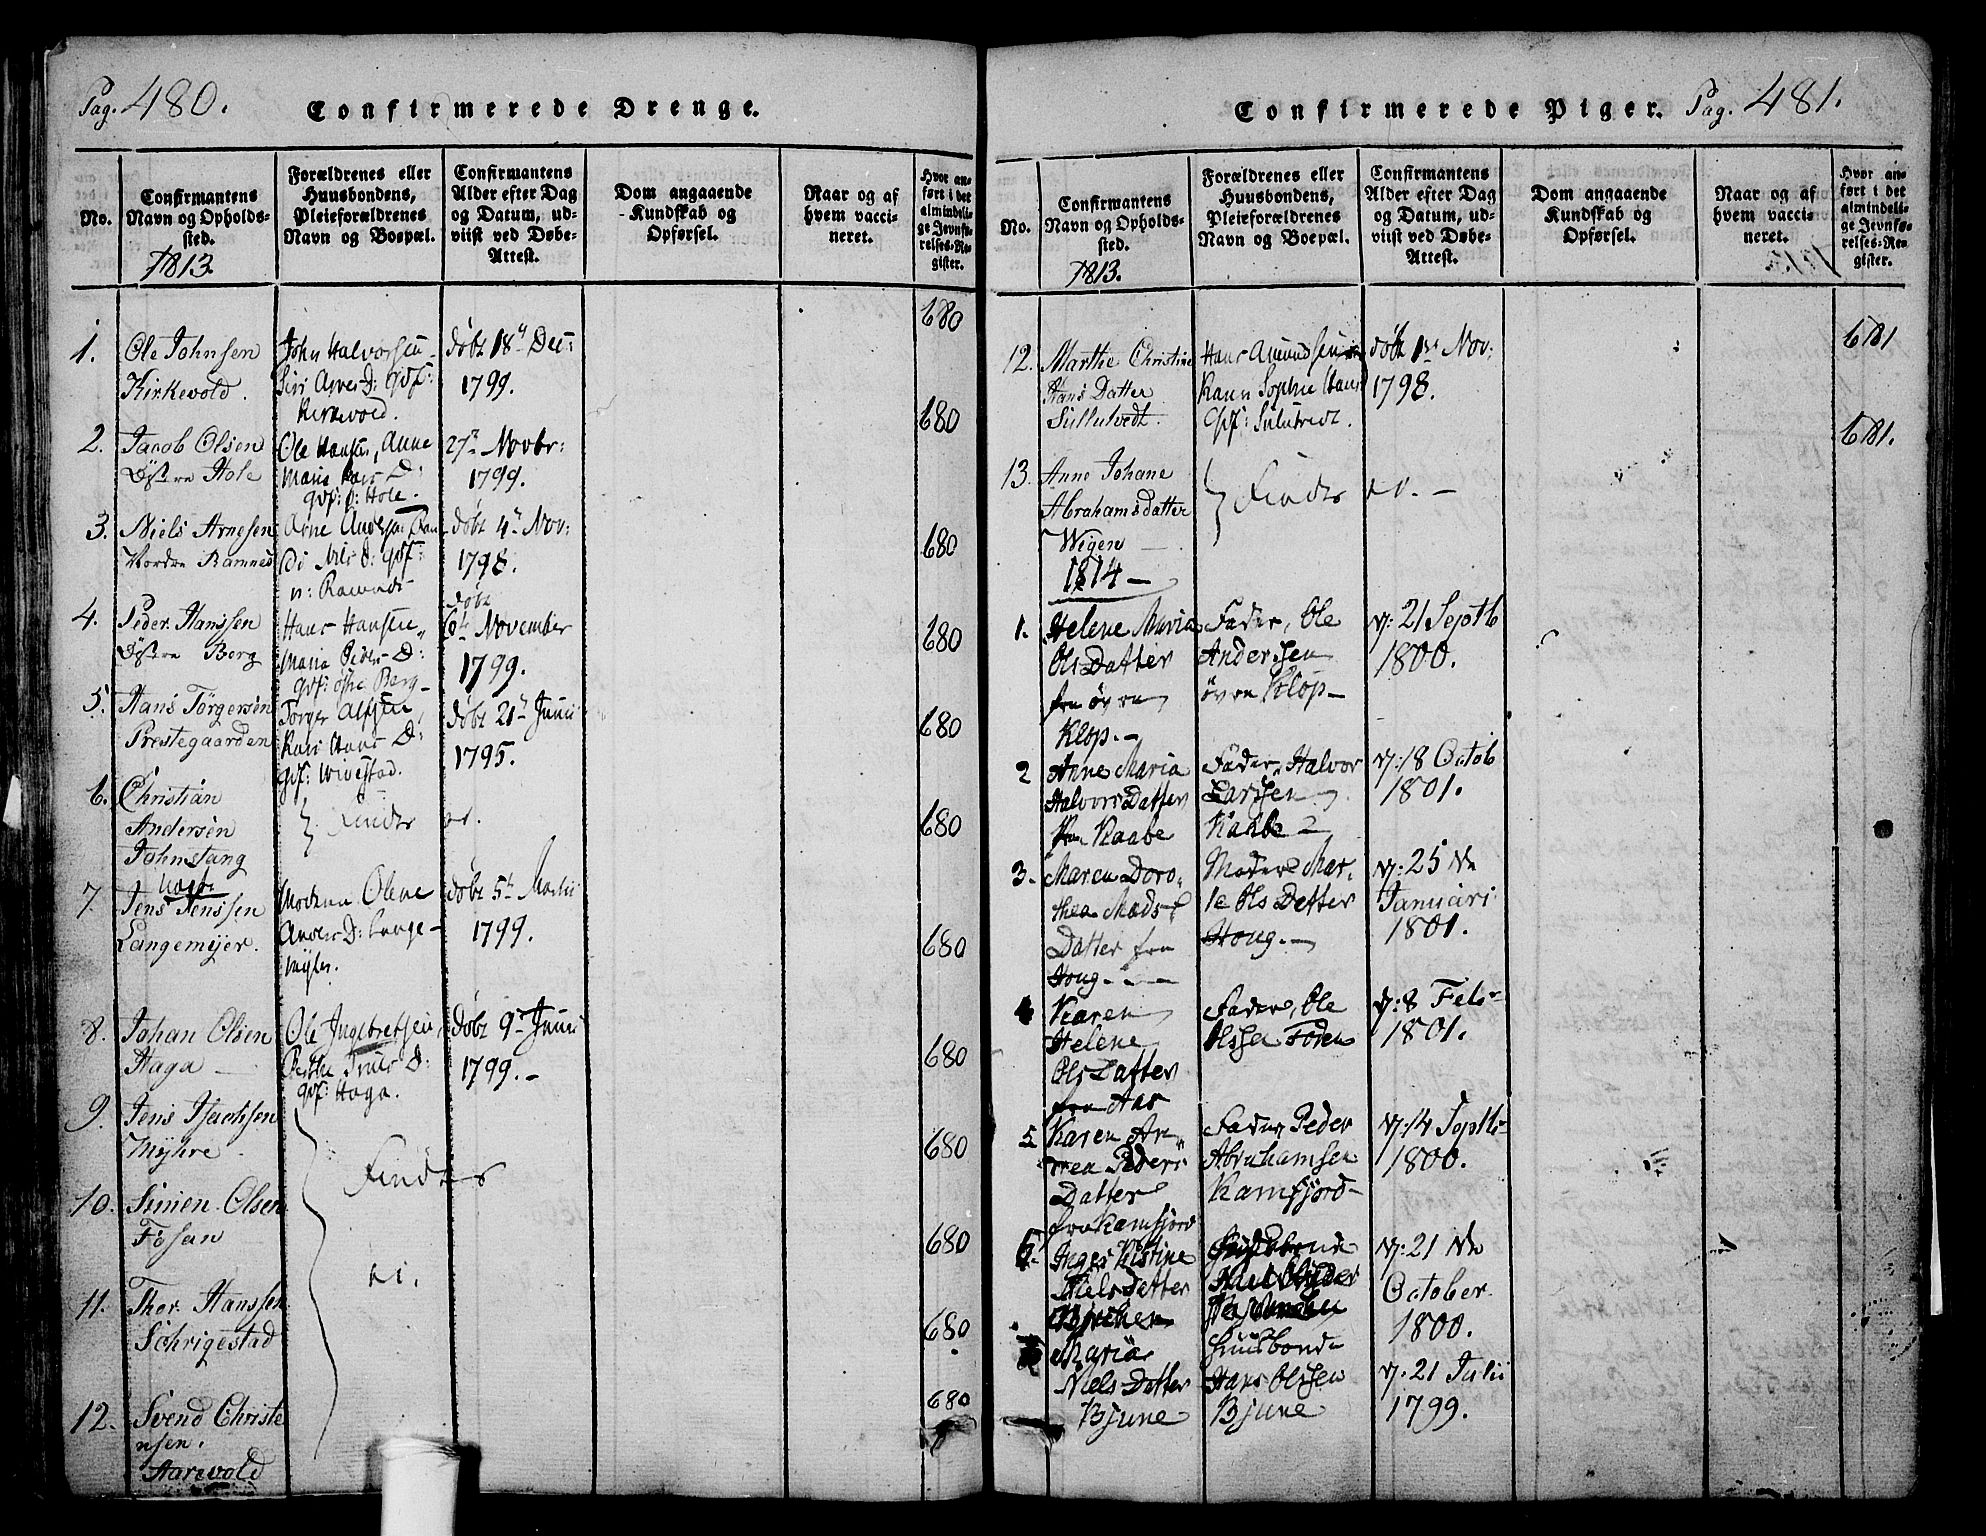 Pag. 480.
Confirmerede Drenge.
No.
Confirmantens
Navn og Opholds-
sted.
1813.
Forældrenes eller
Huusbondens,
Pleieforældrenes
Navn og Boepæl.
Confirmantens
Alder efter Dag
og Datum, ud-
viist ved Døbe-
Attest.
Dom angaaende
Kundskab og
Opførsel.
Naar og af
hvem vacci-
neret.
Hvor an-
ført i det
almindeli-
ge Jevnfø-
relses-Re-
gister.
1.
Ole Johnsen
Kirkevold.
John Halvorsen
Siri Arnes D: gdf:
Kirkevold.
døbt 18de Dec:
1799.
680
2.
Jacob Olsen
Østre Hole
Ole Hansen, Anne
Maria Lars D:
gdf: ø: Hole.
27de Novbr:
1799.
680
3.
Niels Arnesen
Nordre Ramnes
Arne Andersen Ran
di Nils D: gdf:
n: Ramnes
døbt 4de Nov:
1798.
680
4.
Peder Hanssen
Østre Berg
Hans Hansen
Maria Peders D:
gdf: østre Berg
døbt
6te November
1799.
680
5.
Hans Törgersen
Prestegaarden
Törger Alfsen
Kari Hans D:
gdf: Wivestad.
døbt 21de Junii
1795.
680
6.
Christian
Andersen
Johnstang
Findes ei.
680
7.
Jens Jenssen
Langemyer.
Moderen Olene
Anders D: Lange-
myhr.
døbt 5te Martii
1799.
680
8.
Johan Olsen
Haga
Ole Ingebretsen
Berthe Trues D:
gdf: Haga.
døbt 9de Junii
1799.
680
9.
Jens Isachsen
Myhre
680
10.
Simen Olsen
Fosan
Findes
ei.
680
11.
Thor Hanssen
Söhrigestad
680
12.
Svend Christe
nsen.
Aarevold
680
Confirmerede Piger.
Pag. 481.
No.
Confirmantens
Navn og Opholds-
sted.
1813.
Forældrenes eller
Huusbondens,
Pleieforældrenes
Navn og Boepæl.
Confirmantens
Alder efter Dag
og Datum, ud-
viist ved Døbe-
Attest.
Dom angaaende
Kundskab og
Opførsel.
Naar og af
hvem vacci-
neret.
Hvor an-
ført i det
almindeli-
ge Jevnfø-
relses-Re-
gister.
12.
Marthe Christine
Hans Datter
Sullutvedt.
Hans Amundsen
Karen Sophie Hans
gdf: Sulutvedt.
døbt 1ste Nov:
1798.
681
13.
Anne Johane
Abrahamsdatter
Wegen
Findes ei.
681.
1814
1.
Helene Maria
Ols Datter
fra øvre
Klop.
Fader, Ole
Anderssen
övre Klop
d: 21 Septb
1800.
2
Anne Maria
Halvors Datter
fra Kaabe
Fader, Halvor
Larssen
Kaabe
d: 18 Octob
1801.
3.
Maren Doro-
thea Mads-
Datter fra
Houg.
Moder Mar-
te Ols Datter
Houg.
d: 25 de
Januari
1801.
4
Karen
Helene
Ols Datter
fra Aas
Fader, Ole
Olssen Foden
d: 8 Febr
1801.
5
Karen An-
drea Peders
Datter
fra Ramfjord
Fader Peder
Abrahamsen
Ramfjord
d: 14 Septbr
1800.
6.
Inger Kistine
Niels Datter
d: 21 de
October
1800.
Maria
Niels Datter
Bjune
Huusbonde
Hans Olssen
Bjune
d: 21 Julii
1799.